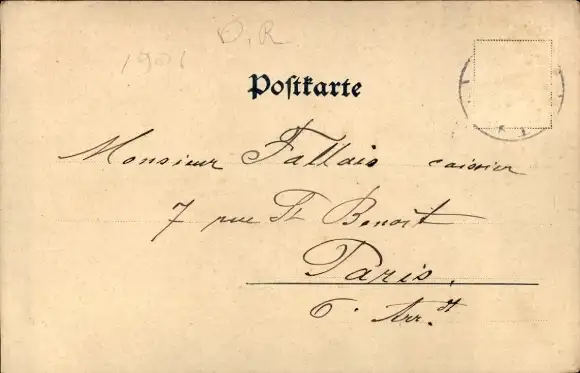 O.R
1901
Postkarte
Monsieur Fallais caissier
7 rue St Benoit
Paris.
6. Arr.dt